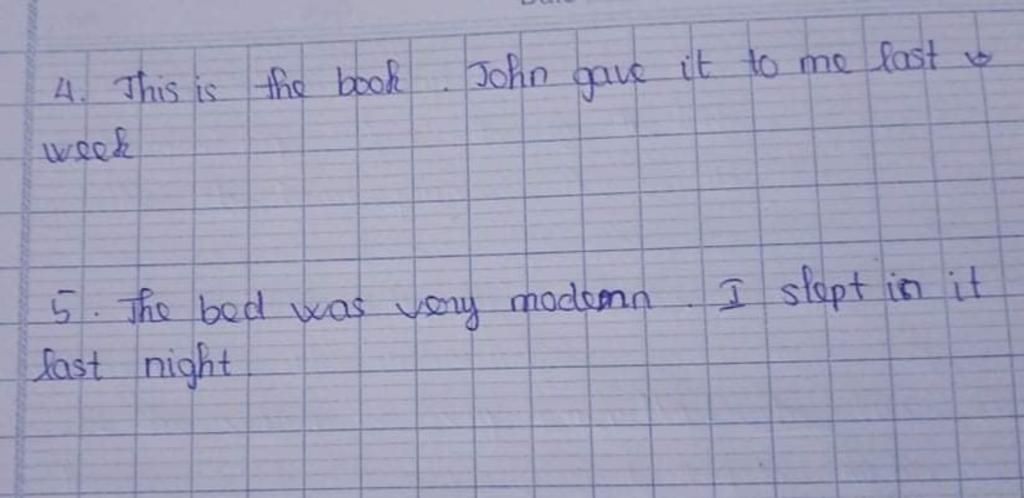 4. This is the book. John gave it to me last
week
5. The bed was very modern. I slept in it
last night